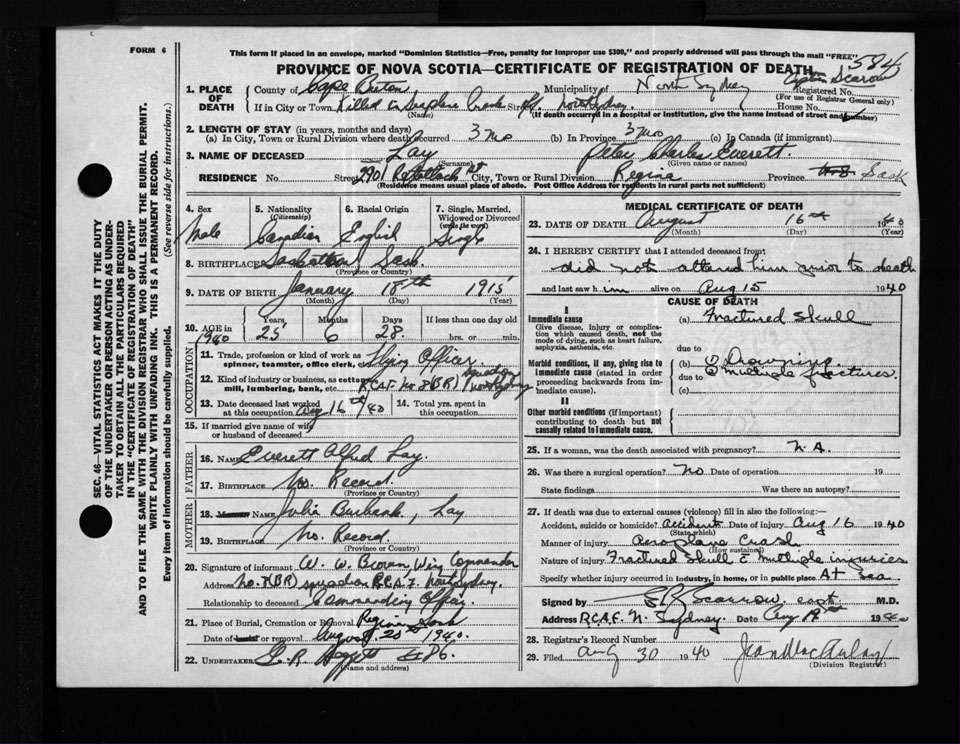 FORM 6
This form if placed in an envelope, marked "Dominion Statistics—Free, penalty for improper use $300," and properly addressed will pass through the mail "FREE"
584
PROVINCE OF NOVA SCOTIA—CERTIFICATE OF REGISTRATION OF DEATH
1. PLACE OF DEATH
County of Cape Breton Municipality of North Sydney Registered No.
(For use of Registrar General only)
If in City or Town Killed in Seaplane Crash Street North Sydney House No.
(Name) (If death occurred in a hospital or institution, give the name instead of street and number)
2. LENGTH OF STAY (in years, months and days)
(a) In City, Town or Rural Division where death occurred 3 Mo (b) In Province 3 Mos (c) In Canada (if immigrant)
3. NAME OF DECEASED Lay Peter Charles Everett.
(Surname) (Given name or names)
RESIDENCE No. Street 2901 Retallack St City, Town or Rural Division Regina Province Sask
(Residence means usual place of abode. Post Office Address for residents in rural parts not sufficient)
4. Sex Male
5. Nationality (Citizenship) Canadian
6. Racial Origin English
7. Single, Married, Widowed or Divorced (write the word) Single
8. BIRTHPLACE Saskatoon Sask.
(Province or Country)
9. DATE OF BIRTH January 18th 1915
(Month) (Day) (Year)
10. AGE in 1940 Years 25 Months 6 Days 28. If less than one day old
hrs. or min.
OCCUPATION
11. Trade, profession or kind of work as spinner, teamster, office clerk, etc. Flying Officer
12. Kind of industry or business, as cotton mill, lumbering, bank, etc. R.C.A.F. No 8 (BR) North Sydney
13. Date deceased last worked at this occupation Aug 16th/40
14. Total yrs. spent in this occupation.
15. If married give name of wife or husband of deceased
FATHER
16. NAME Everett Alfred Lay.
17. BIRTHPLACE No. Record.
(Province or Country)
MOTHER
18. NAME Julia Burbank, Lay
19. BIRTHPLACE No. Record.
(Province or Country)
20. Signature of informant W. W. Brown Wing Commander
Address No. 8 (BR) squadron R.C.A.F. North Sydney.
Relationship to deceased Commanding Officer.
21. Place of Burial, Cremation or Removal Regina Sask
Date of burial or removal August 20th 1940.
22. UNDERTAKER
(Name and address)
MEDICAL CERTIFICATE OF DEATH
23. DATE OF DEATH August 16th 1940
(Month) (Day) (Year)
24. I HEREBY CERTIFY that I attended deceased from:
did not attend him prior to death
and last saw him alive on Aug 15 1940
CAUSE OF DEATH
I
Immediate cause
Give disease, injury or complication which caused death, not the mode of dying, such as heart failure, asphyxia, asthenia, etc.
(a) Fractured Skull
due to
Morbid conditions, if any, giving rise to immediate cause (stated in order proceeding backwards from immediate cause).
(b) Drowning
due to Multiple fractures
(c)
II
Other morbid conditions (if important) contributing to death but not causally related to immediate cause.
25. If a woman, was the death associated with pregnancy? N.A.
26. Was there a surgical operation? No Date of operation 19
State findings Was there an autopsy?
27. If death was due to external causes (violence) fill in also the following:—
Accident, suicide or homicide? Accident Date of injury Aug 16 1940
(State which)
Manner of injury Aeroplane Crash
(How sustained)
Nature of injury Fractured Skull & multiple injuries
Specify whether injury occurred in industry, in home, or in public place At Sea
Signed by Scarrow. capt. M.D.
Address R.C.A.F. N. Sydney. Date Aug 19th 1940
28. Registrar's Record Number
29. Filed Aug 30 1940 Jean MacAulay
(Division Registrar)
SEC. 46—VITAL STATISTICS ACT MAKES IT THE DUTY
OF THE UNDERTAKER OR PERSON ACTING AS UNDER-
TAKER TO OBTAIN ALL THE PARTICULARS REQUIRED
IN THE "CERTIFICATE OF REGISTRATION OF DEATH"
AND TO FILE THE SAME WITH THE DIVISION REGISTRAR WHO SHALL ISSUE THE BURIAL PERMIT.
WRITE PLAINLY WITH UNFADING INK. THIS IS A PERMANENT RECORD.
Every item of information should be carefully supplied. (See reverse side for instructions.)